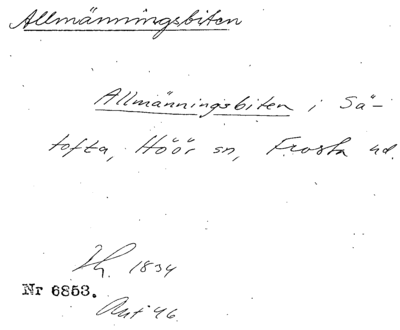 Allmänningsbiten
Allmänningsbiten i Sä-
tofta, Höör sn, Frosta hd.
1834
Nr 6853.
46.